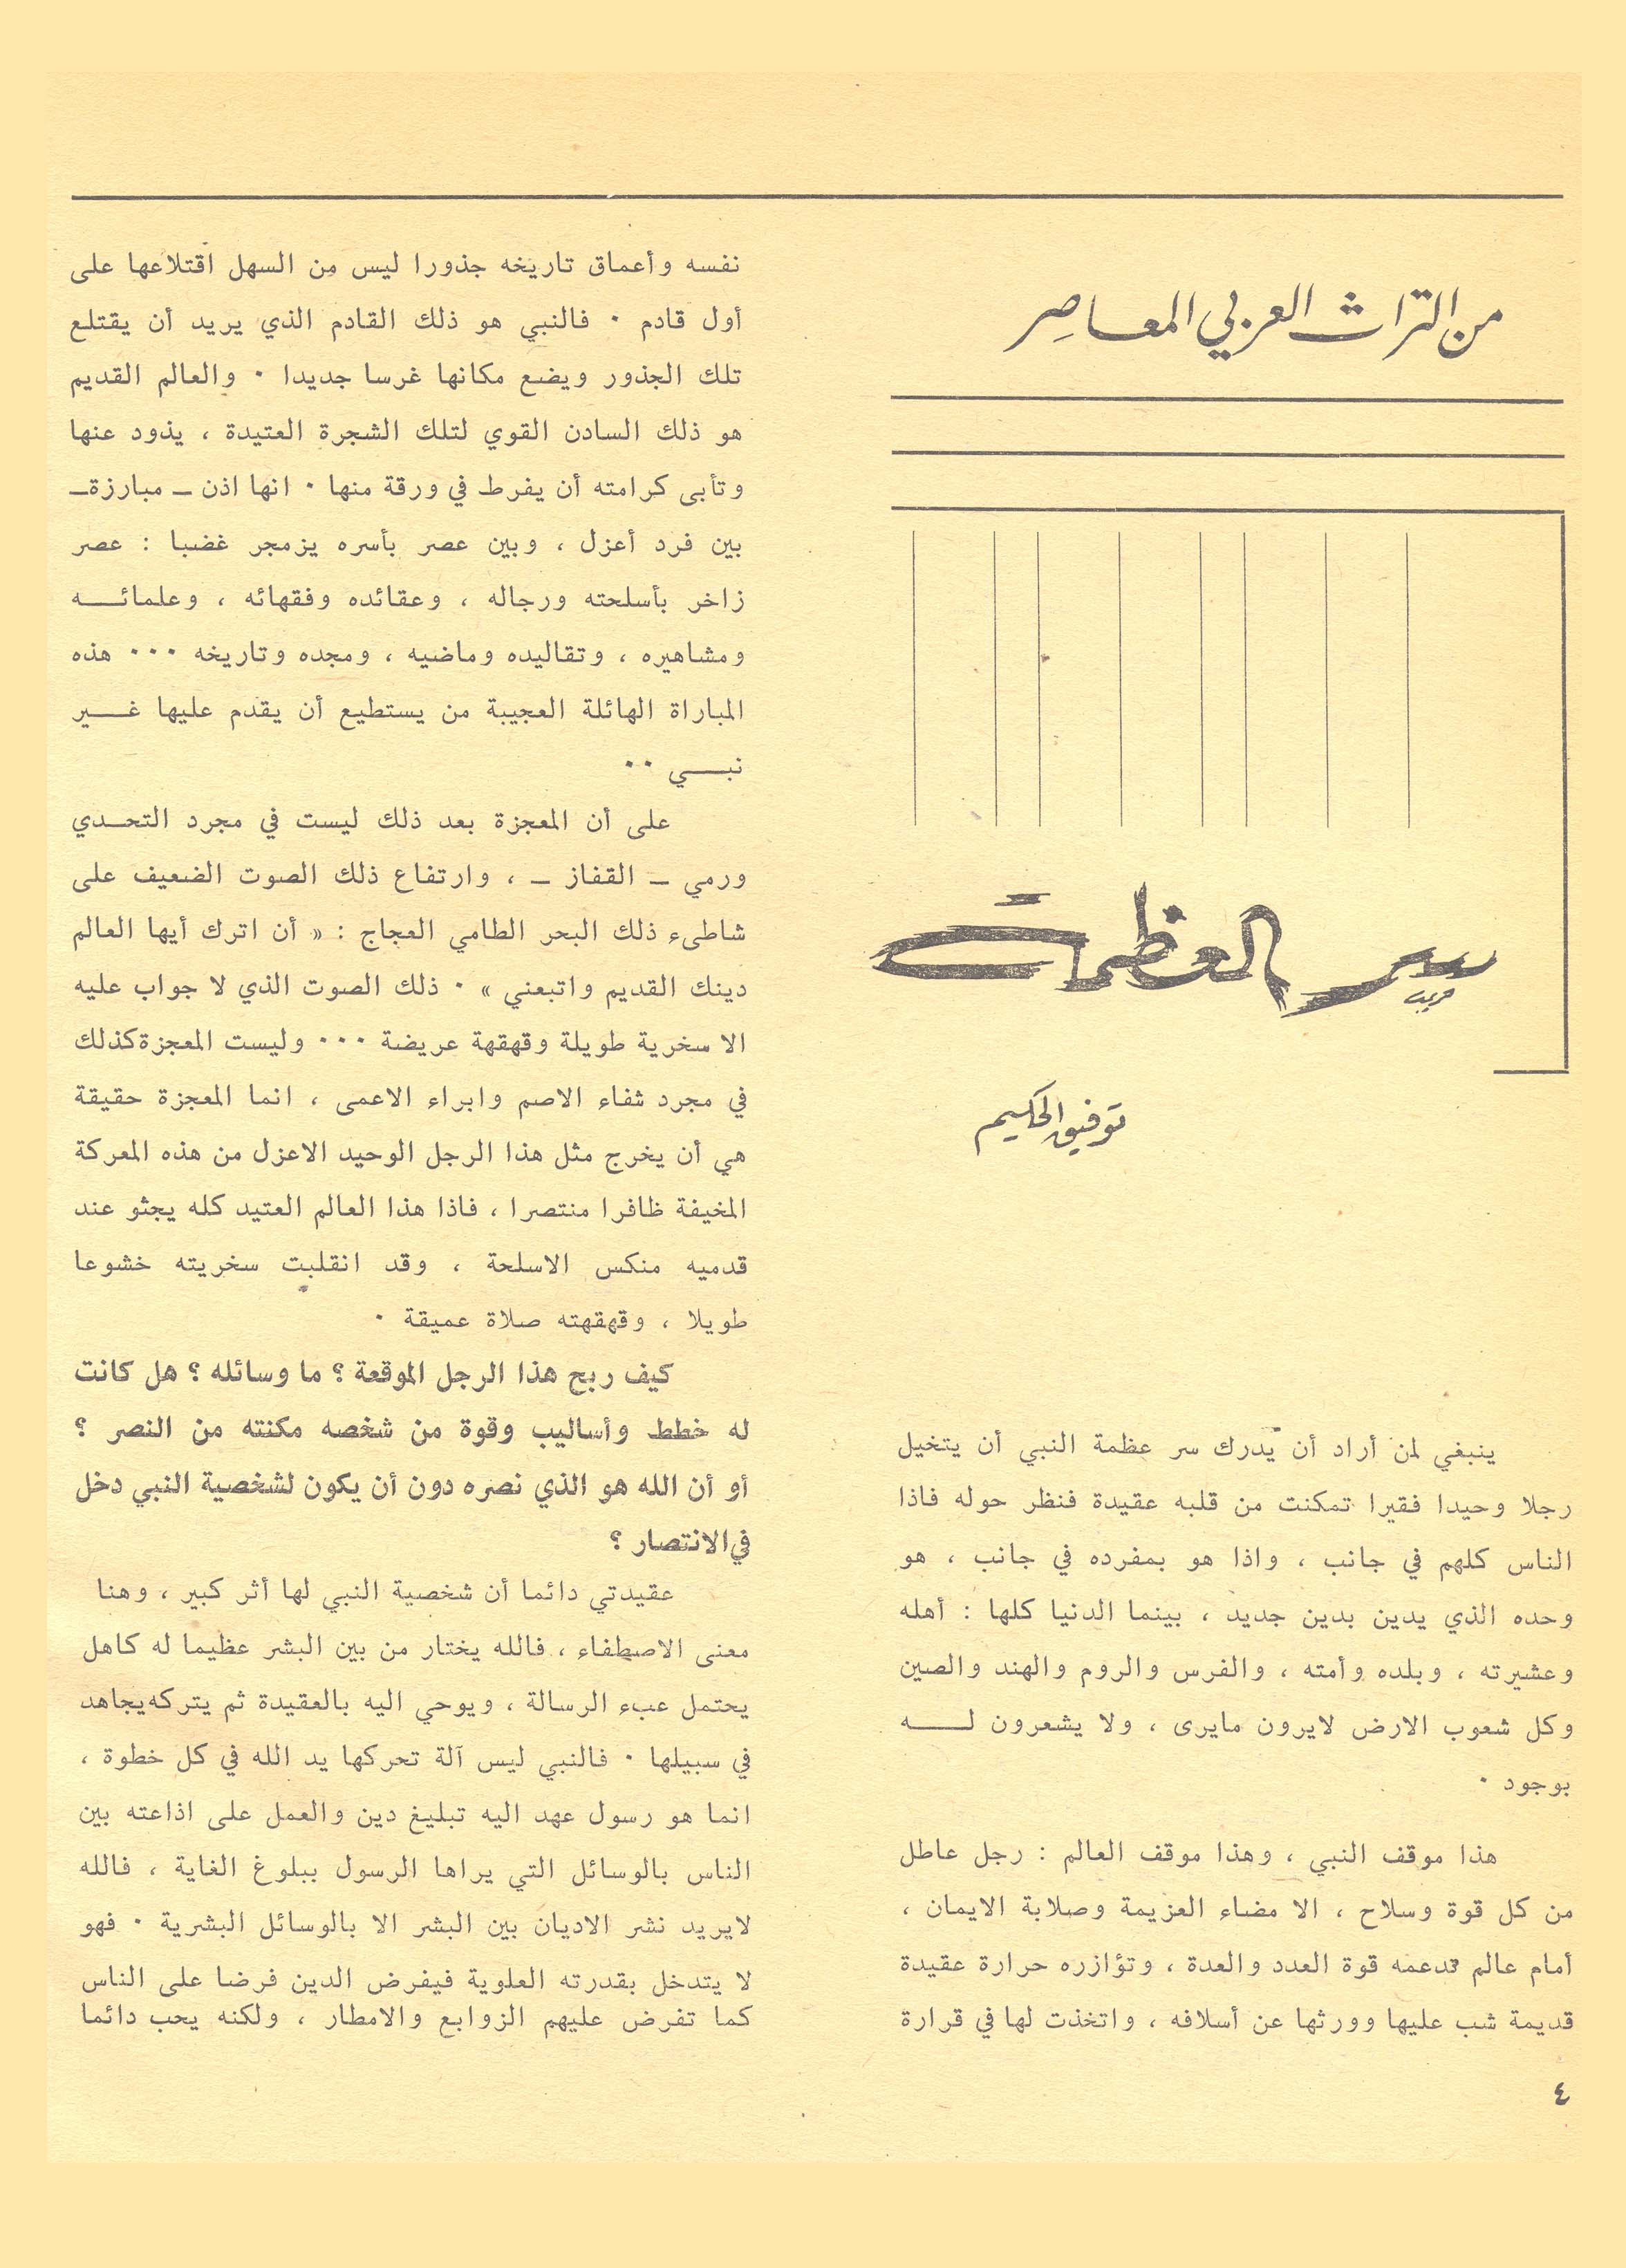 من التراث العربي المعاصر
سر العظمة
توفيق الحكيم
ينبغي لمن أراد أن يدرك سر عظمة النبي أن يتخيل
رجلا وحيدا فقيرا تمكنت من قلبه عقيدة فنظر حوله فاذا
الناس كلهم في جانب ، واذا هو بمفرده في جانب ، هو
وحده الذي يدين بدين جديد ، بينما الدنيا كلها : أهله
وعشيرته ، وبلده وأمته ، والفرس والروم والهند والصين
وكل شعوب الارض لايرون مايرى ، ولا يشعرون لـــه
بوجود ٠
هذا موقف النبي ، وهذا موقف العالم : رجل عاطل
من كل قوة وسلاح ، الا مضاء العزيمة وصلابة الايمان ،
أمام عالم تدعمه قوة العدد والعدة ، وتؤازره حرارة عقيدة
قديمة شب عليها وورثها عن أسلافه ، واتخذت لها في قرارة
نفسه وأعماق تاريخه جذورا ليس من السهل اقتلاعها على
أول قادم ٠ فالنبي هو ذلك القادم الذي يريد أن يقتلع
تلك الجذور ويضع مكانها غرسا جديدا ٠ والعالم القديم
هو ذلك السادن القوي لتلك الشجرة العتيدة ، يذود عنها
وتأبى كرامته أن يفرط في ورقة منها ٠ انها اذن ـ مبارزة ـ
بين فرد أعزل ، وبين عصر بأسره يزمجر غضبا : عصر
زاخر بأسلحته ورجاله ، وعقائده وفقهائه ، وعلمائـــه
ومشاهيره ، وتقاليده وماضيه ، ومجده وتاريخه ٠٠٠ هذه
المباراة الهائلة العجيبة من يستطيع أن يقدم عليها غـــير
نبـــي ٠٠
على أن المعجزة بعد ذلك ليست في مجرد التحـدي
ورمي ـ القفاز ـ ، وارتفاع ذلك الصوت الضعيف على
شاطىء ذلك البحر الطامي العجاج : « أن اترك أيها العالم
دينك القديم واتبعني » ٠ ذلك الصوت الذي لا جواب عليه
الا سخرية طويلة وقهقهة عريضة ٠٠٠ وليست المعجزة كذلك
في مجرد شفاء الاصم وابراء الاعمى ، انما المعجزة حقيقة
هي أن يخرج مثل هذا الرجل الوحيد الاعزل من هذه المعركة
المخيفة ظافرا منتصرا ، فاذا هذا العالم العتيد كله يجثو عند
قدميه منكس الاسلحة ، وقد انقلبت سخريته خشوعا
طويلا ، وقهقهته صلاة عميقة ٠
كيف ربح هذا الرجل الموقعة ؟ ما وسائله ؟ هل كانت
له خطط وأساليب وقوة من شخصه مكنته من النصر ؟
أو أن الله هو الذي نصره دون أن يكون لشخصية النبي دخل
في الانتصار ؟
عقيدتي دائما أن شخصية النبي لها أثر كبير ، وهنا
معنى الاصطفاء ، فالله يختار من بين البشر عظيما له كاهل
يحتمل عبء الرسالة ، ويوحي اليه بالعقيدة ثم يتركه يجاهد
في سبيلها ٠ فالنبي ليس آلة تحركها يد الله في كل خطوة ،
انما هو رسول عهد اليه تبليغ دين والعمل على اذاعته بين
الناس بالوسائل التي يراها الرسول ببلوغ الغاية ، فالله
لايريد نشر الاديان بين البشر الا بالوسائل البشرية ٠ فهو
لا يتدخل بقدرته العلوية فيفرض الدين فرضا على الناس
كما تفرض عليهم الزوابع والامطار ، ولكنه يحب دائما
٤